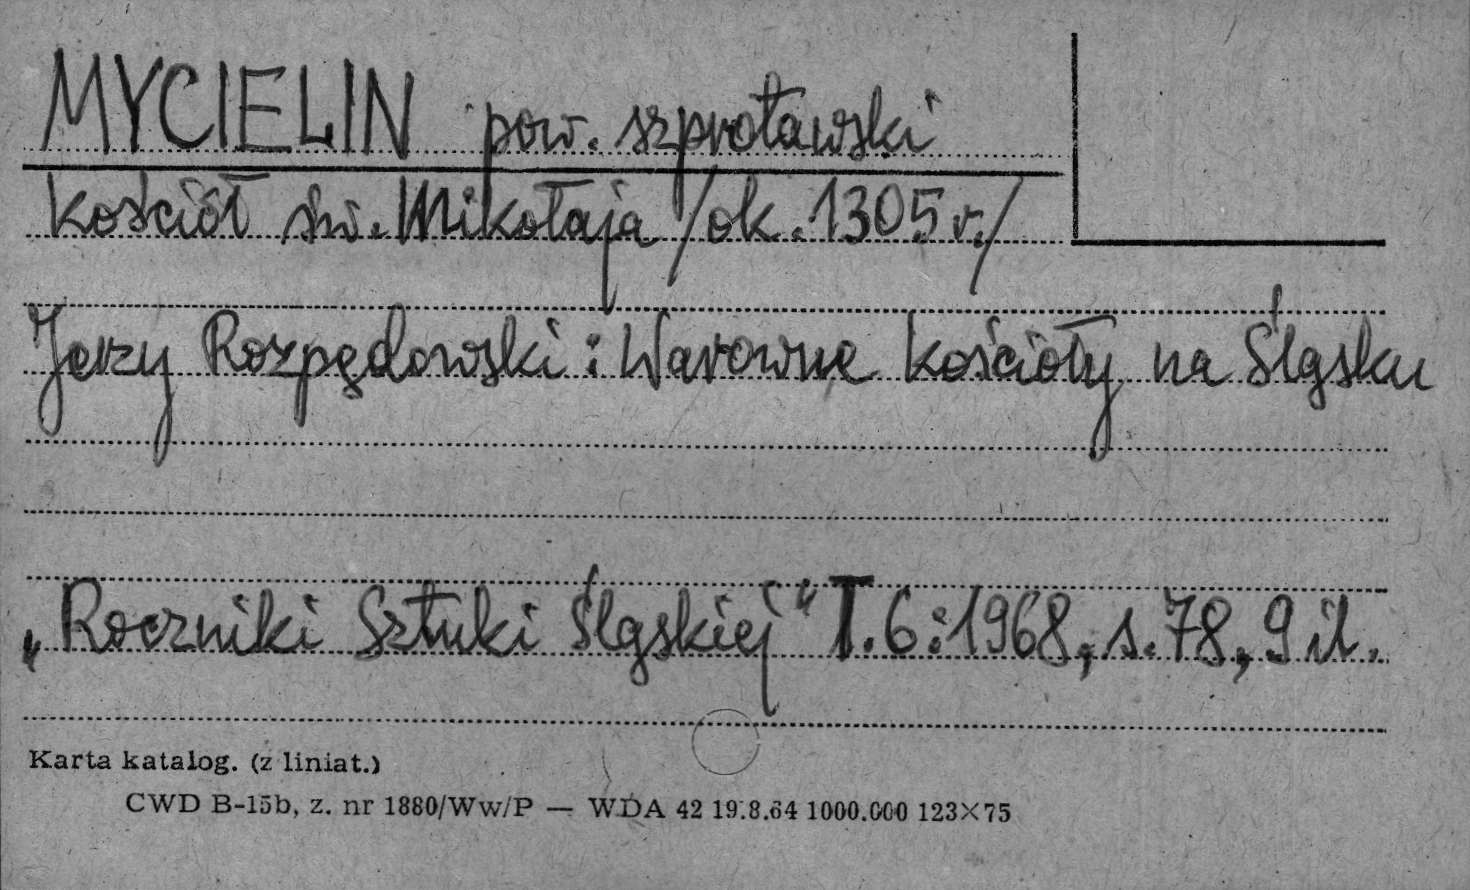 MYCIELIN pow. szprotawski
Kościół św. Mikołaja /ok. 1305 r./
Jerzy Rozpędowski : Warowne kościoły na Śląsku
„Roczniki Sztuki Śląskiej" T. 6:1968, s. 78, 9 il.
Karta katalog. (z liniat.)
CWD B-15b, z. nr 1880/Ww/P — WDA 42 19.8.64 1000.000 123×75